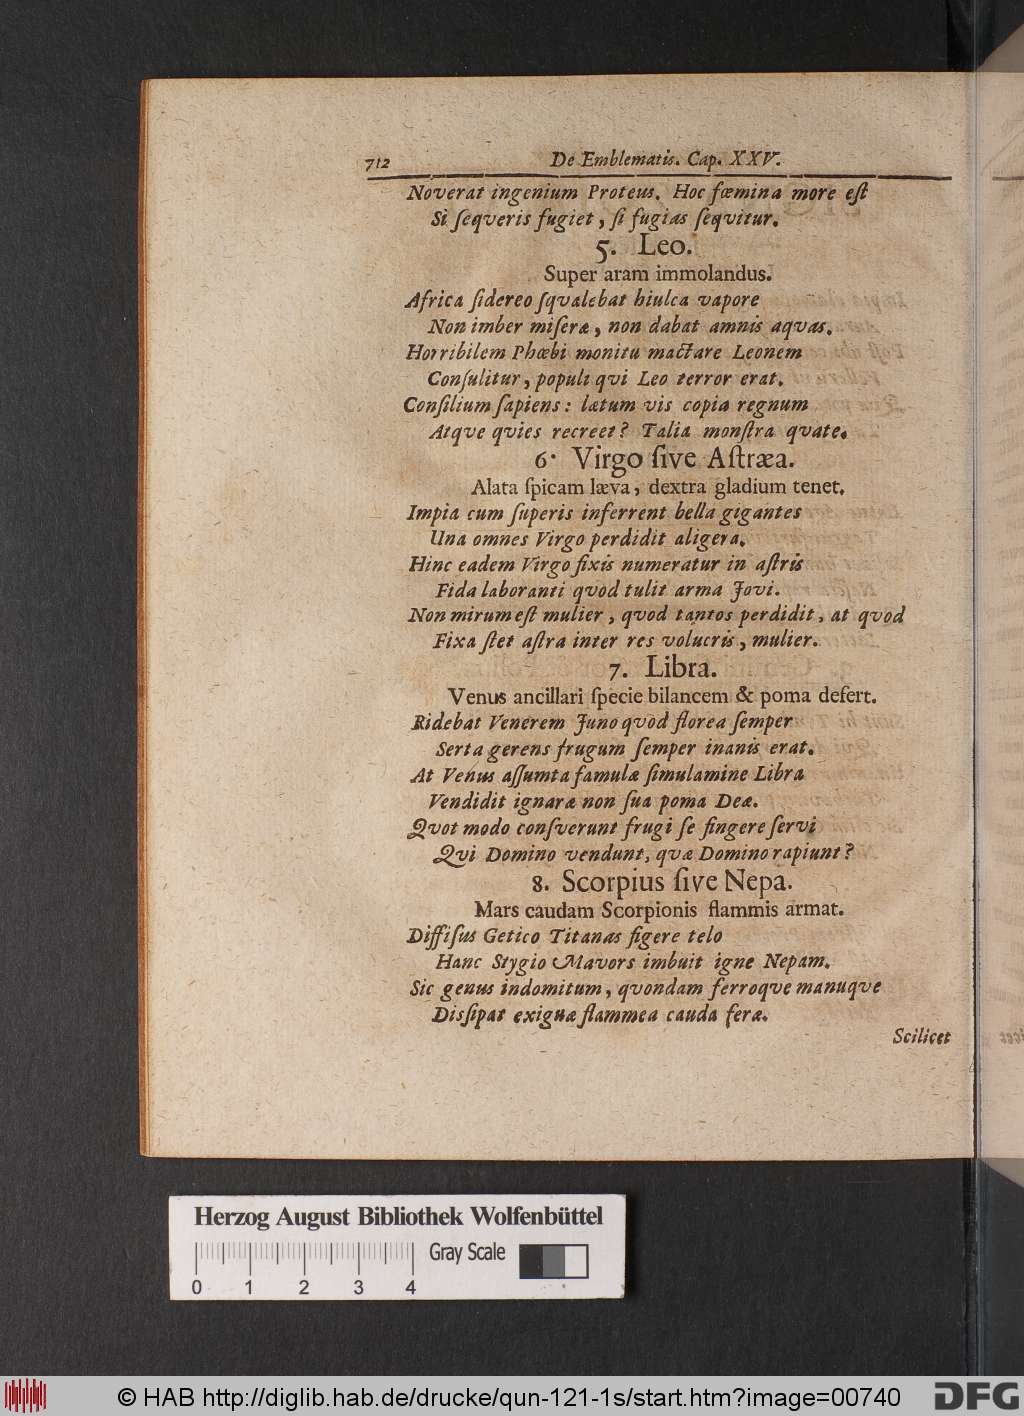 712 De Emblematis. Cap. XXV.
Noverat ingenium Proteus. Hoc fœmina more eſt
Si ſequeris fugiet, ſi fugias ſequitur.
5. Leo.
Super aram immolandus.
Africa ſidereo ſqualebat hiulca vapore
Non imber miſeræ, non dabat amnis aquas.
Horribilem Phœbi monitu mactare Leonem
Conſulitur, populi qvi Leo terror erat.
Conſilium ſapiens: lætum vis copia regnum
Atqve qvies recreet? Talia monſtra qvate.
6. Virgo ſive Aſtræa.
Alata ſpicam læva, dextra gladium tenet.
Impia cum ſuperis inferrent bella gigantes
Una omnes Virgo perdidit aligera.
Hinc eadem Virgo fixis numeratur in aſtris
Fida laboranti qvod tulit arma Jovi.
Non mirum eſt mulier, qvod tantos perdidit, at qvod
Fixa ſtet aſtra inter res volucris, mulier.
7. Libra.
Venus ancillari ſpecie bilancem & poma defert.
Ridebat Venerem Juno qvod florea ſemper
Serta gerens frugum ſemper inanis erat.
At Venus aſſumta famulæ ſimulamine Libra
Vendidit ignaræ non ſua poma Deæ.
Qvot modo conſverunt frugi ſe fingere ſervi
Qvi Domino vendunt, qvæ Domino rapiunt?
8. Scorpius ſive Nepa.
Mars caudam Scorpionis flammis armat.
Diffiſus Getico Titanas figere telo
Hanc Stygio Mavors imbuit igne Nepam.
Sic genus indomitum, qvondam ferroqve manuqve
Disſipat exiguæ flammea cauda feræ.
Scilicet
Herzog August Bibliothek Wolfenbüttel
Gray Scale
0 1 2 3 4
© HAB http://diglib.hab.de/drucke/qun-121-1s/start.htm?image=00740
DFG